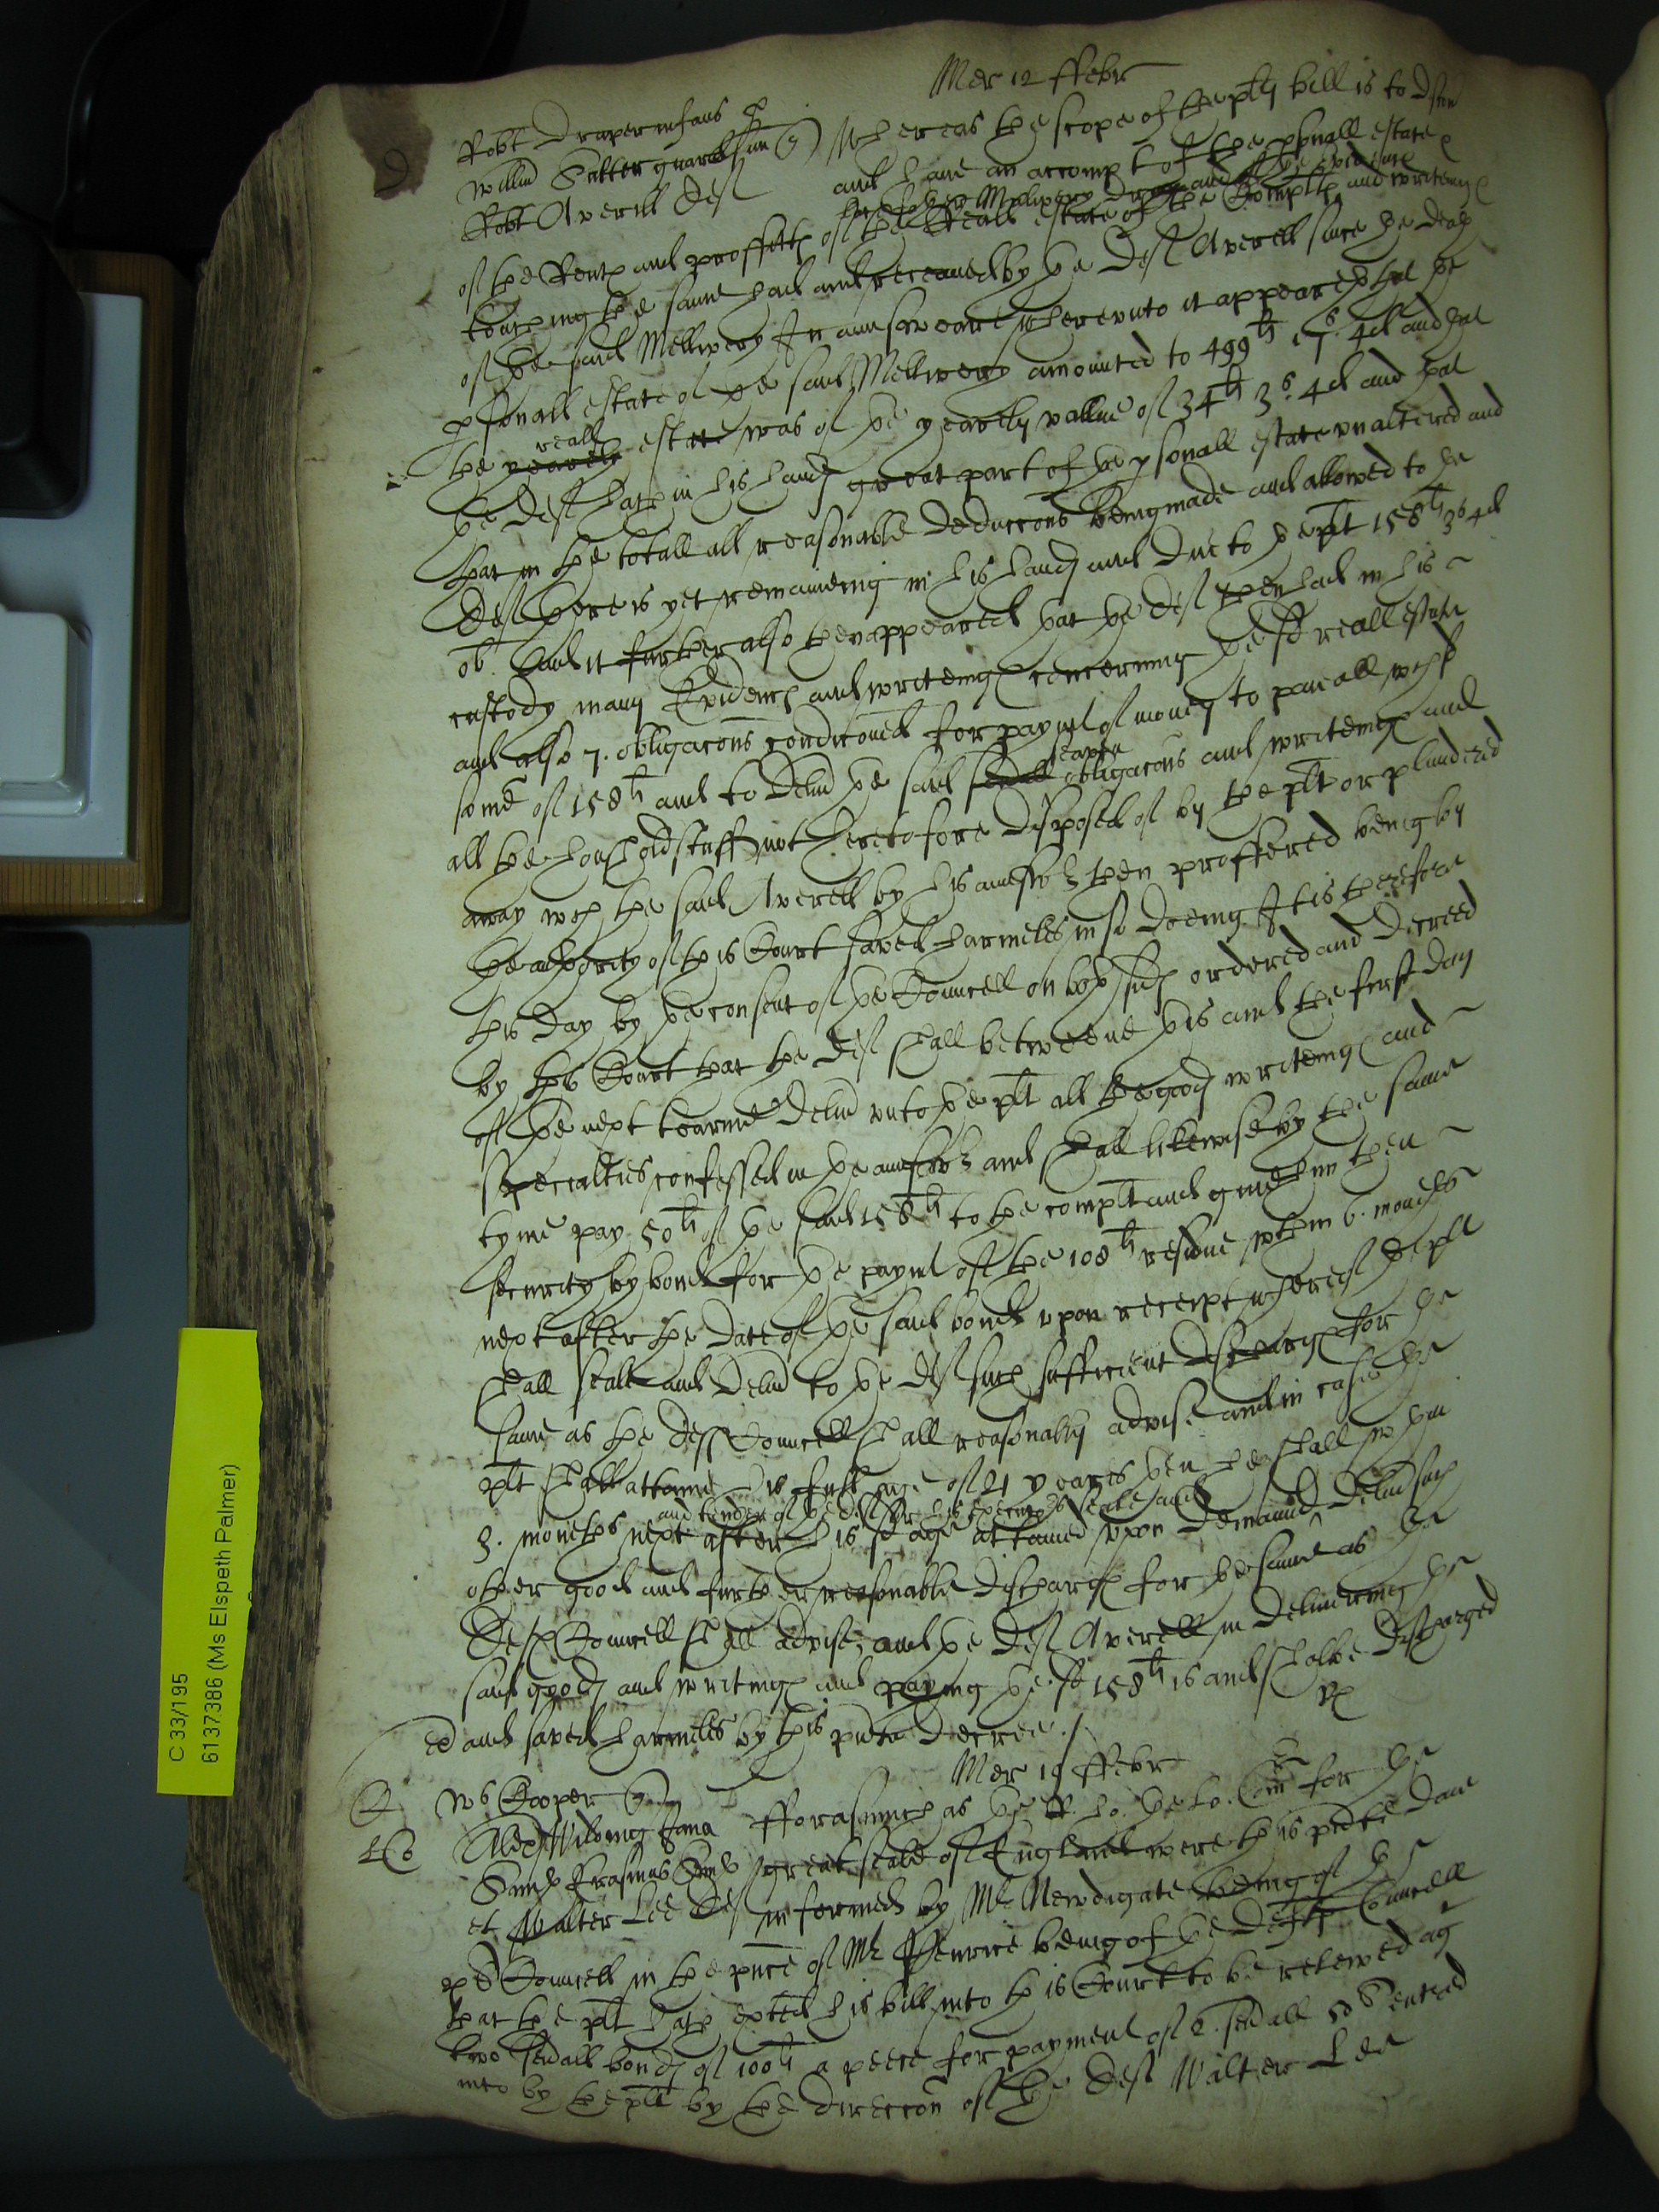 Mer 12 ffebr
D
Robt Draper infans p
Willm Satterguard sun
Robt Averell Def
Whereas the scope of the plts bill is to
and have an accompt of the psonall estate
of the Rents and proffitts of the Reall estate of the Complt and writeings
touching the same had and receaved by the Def Averell since the death
of the said Mellwery In answeare whereunto it appeareth that the
psonall estate of the said Mellwery amounted to 499li 17s. 4d and that
the yearely reall estate was of the yearely vallue of 34li 3s. 4d and that
the Def hath in his hands great part of the psonall estate unaltered and
that in the totall all reasonable deduccons being made and allowed to the
Def there is yet remaineing in his hands and due to the plt 158li 3s 4d
ob. And it further also then appeared that the Def then had in his
custody many Evidences and writeings concerning the sd reall estate
and also 7. obligacons condiconed for paymt of money to pay all wch
some of 158li and to deliver the said severall seaven obligacons and writeings and
all the houshold stuff not heretofore disposed of by the plt or plundered
away wch the said Averell by his answer then proffered being by
the authority of this Court saved harmeles in so doeing It is therefore
this day by the consent of the Councell on both sides ordered and decreed
by this Court that the Def shall betweene this and the first day
of the next tearme deliver unto the plt all the goods writeings and
specialties confessed in the answer and shall likewise by the same
tyme pay 50li of the said 158li to the complt and give him then
security by bond for the paymt of the 108li residue wthin 6. moneths
next after the date of the said bond upon receipt whereof the plt
shall seale and deliver to the Def such sufficient discharge for the
same as the Defs Councell shall reasonably advise and in case the
plt shall attaine his full age of 21 yeares then he shall wthin
3. moneths next after his sd age attained upon demand and tender of the Def for his expences seale and deliver such
other good and further reasonable discharge for the same as the
Defs Councell shall advise, and the Def Averell in delivering the
said goods and writings and paying the sd 158li is and shalbe discharged
ed and saved harmeles by this pnte decree
Mer 19 ffebr
Ws Cooper
Alex Wilding fama
Sam Erasmus
et Walter Lee Def
fforasmuch as the R. ho. the Lo. Com for the
great seale of England were this pnte daie
informed by Mr Newdigate being of the
plts Councell in the pnce of Mr Fenwicke being of the Defts Councell
that the plt hath exhted his bill into this Court to be releived agt
two severall bonds of 100li a peece for payment of 2. severall 50s entred
into by the plt by the direccon of the Def Walter Lee
C 33/195
6137386 (Ms Elspeth Palmer)